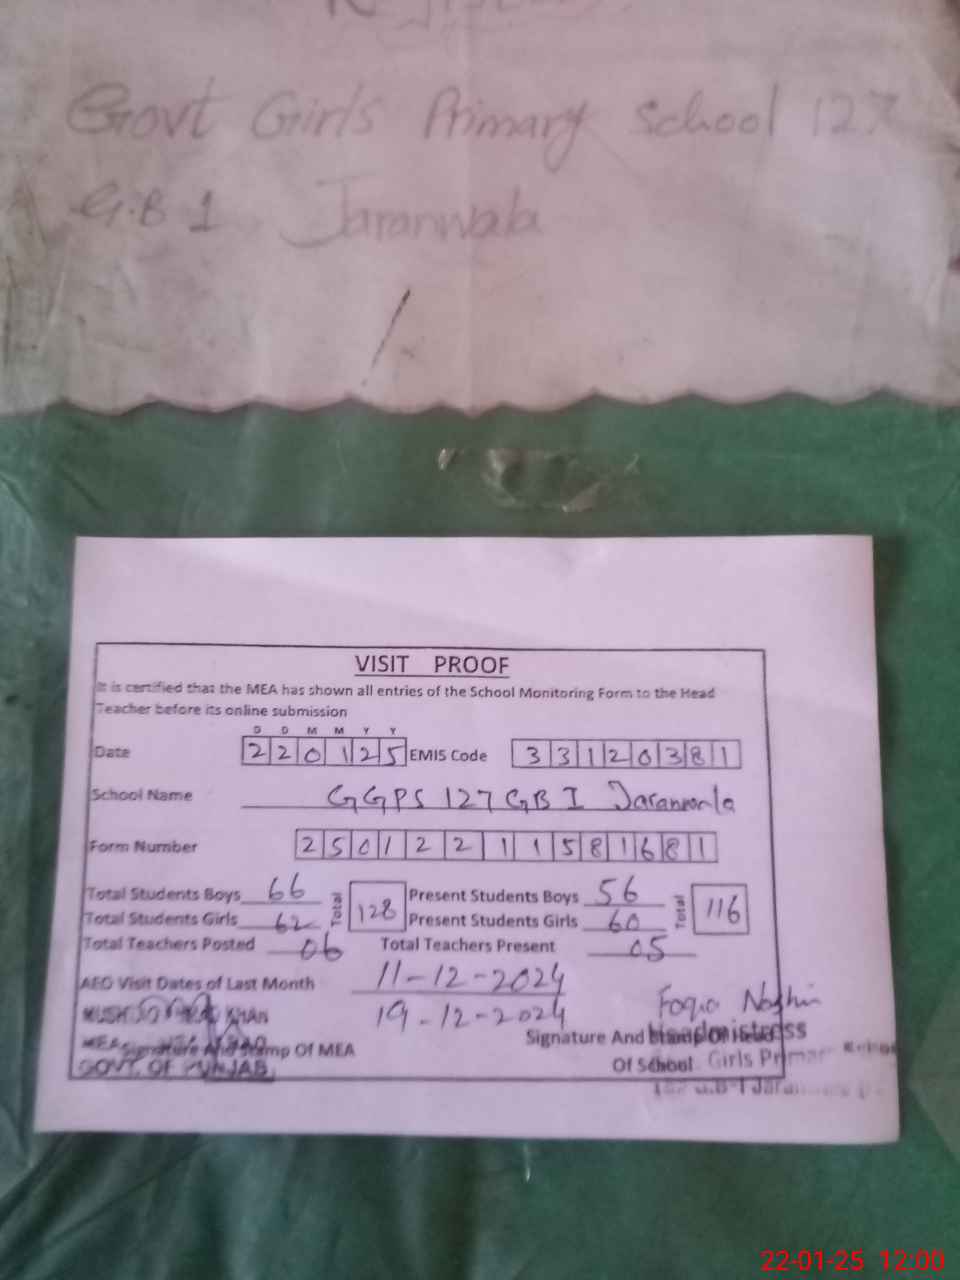 Govt Girls Primary School 127
G.B 1 Jaranwala
VISIT PROOF
It is certified that the MEA has shown all entries of the School Monitoring Form to the Head
Teacher before its online submission
D D M M Y Y
Date 220125 EMIS Code 33120381
School Name GGPS 127 GB I Jaranwala
Form Number 25012211581681
Total Students Boys 66 Total 128 Present Students Boys 56 Total 116
Total Students Girls 62 Present Students Girls 60
Total Teachers Posted 06 Total Teachers Present 05
AEO Visit Dates of Last Month 11-12-2024
KHAN 19-12-2024 Foqia
Signature And Stamp Of Head Headmistress
MEA Signature And Stamp Of MEA
Of School Girls Primar
GOVT. OF PUNJAB
G.B-I Jaran
22-01-25 12:00